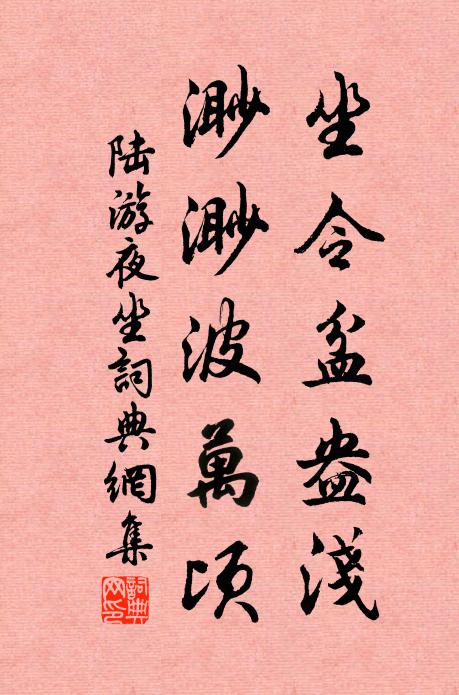 坐令盆盎淺
渺渺波萬頃
陆游夜坐詞典網集
詞典網印